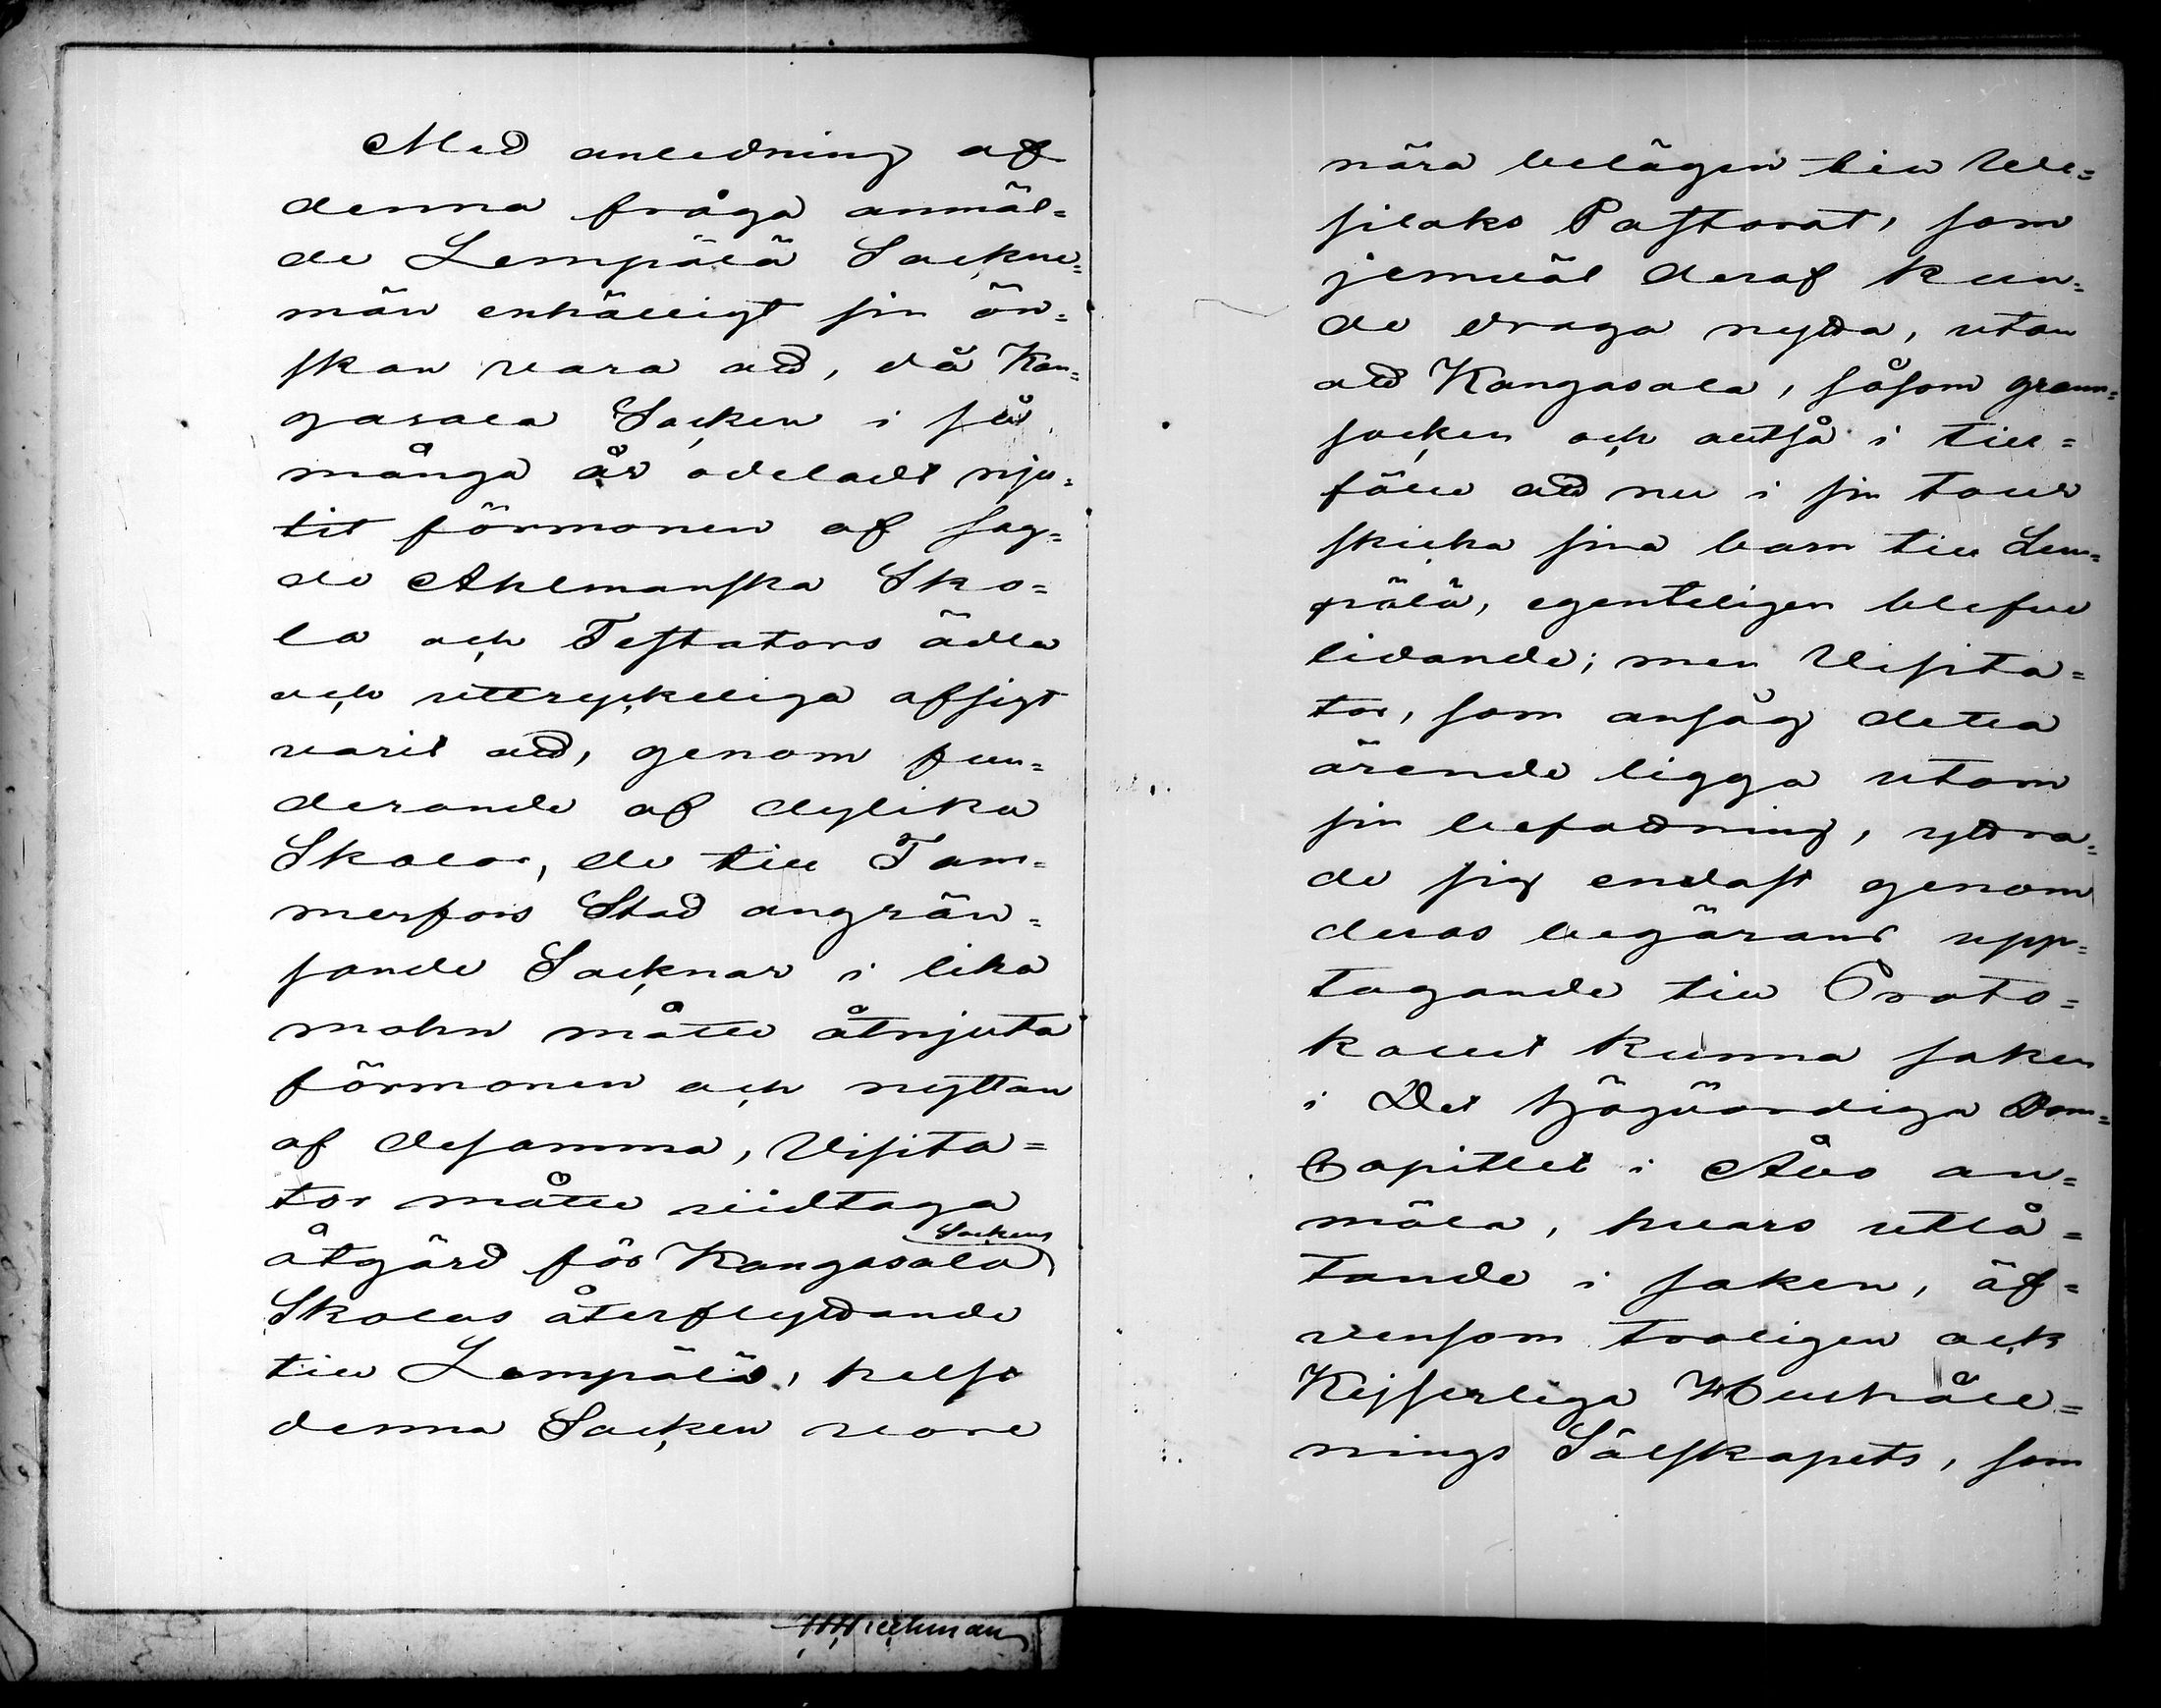 Med anledning af
denna fråga anmäl=
de Lempälä Sockne=
män enhälligt sin ön=
skan vara att, då Kan=
gasala Socken i så
många år odeladt nju=
tit förmonen af sag=
de Ahlmanska Sko=
la och Testators ädla
och uttryckeliga afsigt
varit att, genom fun=
derande af dylika
Skolor, de till Tam=
merfors Stad angrän=
sande Socknar i lika
mohn måtte åtnjuta
förmonen och nyttan
af desamma, Visita=
tor måtte vidtaga
åtgärd för Kangasala Sockens
Skolas återflyttande
till Lempälä, helst
denna Socken vore
nära belägen till Ve=
silaks Pastorat, som
jemväl deraf kun=
de draga nytta, utan
att Kangasala, såsom grann=
socken och altså i till=
fälle att nu i sin tour
skicka sina barn till Lem=
pälä, egenteligen blefve
lidande; men Visita=
tor, som ansåg detta
ärende ligga utom
sin befattning, yttra=
de sig endast genom
deras begärans upp=
tagande till Proto=
kollet kunna saken
i Det Högvördiga Dom=
Capitlet i Åbo an=
mäla, hvars utlå=
tande i saken, äf=
vensom troligen ock
Kejserliga Hushåll=
nings Sälskapets, som